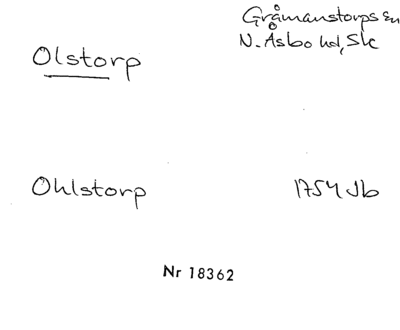 Gråmanstorps sn
Olstorp
N. Åsbo hd, Sk
Ohlstorp 1754 Jb
Nr 18362